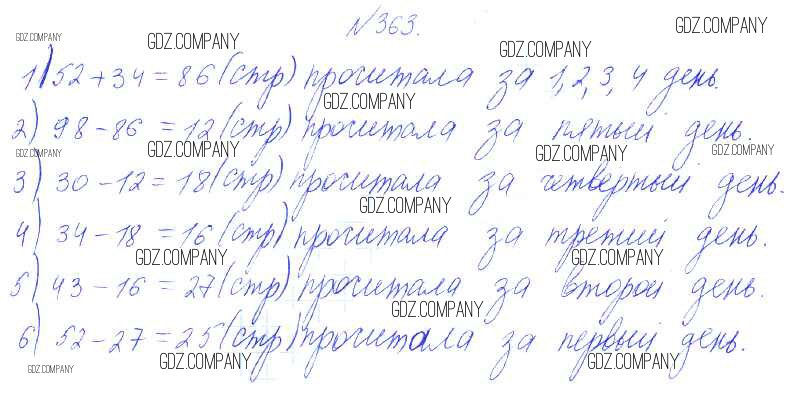 №363.
GDZ.COMPANY GDZ.COMPANY GDZ.COMPANY GDZ.COMPANY
1) 52 + 34 = 86 (стр) прочитала за 1, 2, 3, 4 день.
GDZ.COMPANY
2) 98 - 86 = 12 (стр) прочитала за пятый день.
GDZ.COMPANY GDZ.COMPANY GDZ.COMPANY GDZ.COMPANY
3) 30 - 12 = 18 (стр) прочитала за четвертый день.
GDZ.COMPANY
4) 34 - 18 = 16 (стр) прочитала за третий день.
GDZ.COMPANY GDZ.COMPANY
5) 43 - 16 = 27 (стр) прочитала за второй день.
GDZ.COMPANY
6) 52 - 27 = 25 (стр) прочитала за первый день.
GDZ.COMPANY GDZ.COMPANY GDZ.COMPANY